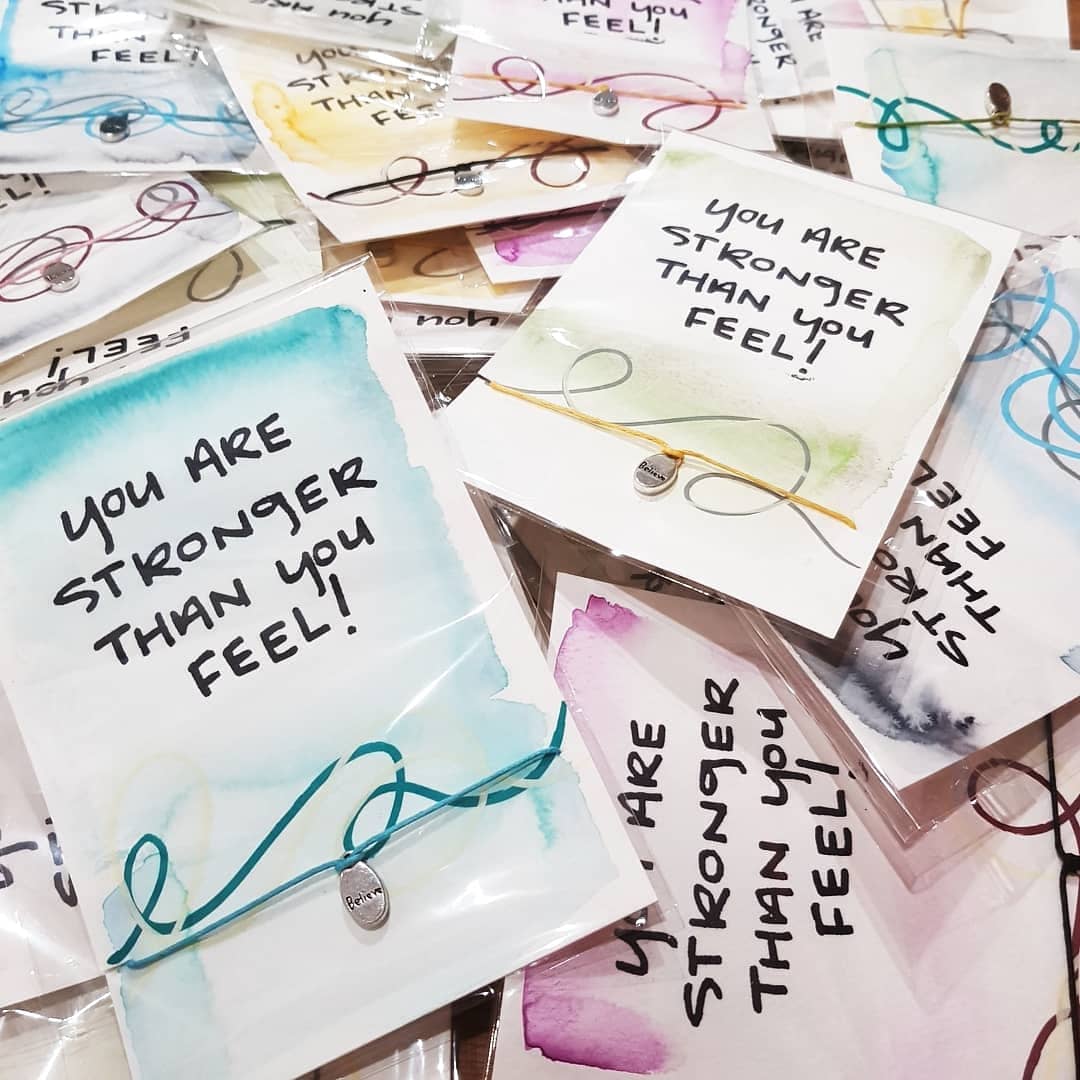 STRONGER
THAN YOU
FEEL!
YOU ARE
STRONGER
THAN YOU
FEEL!
YOU ARE
STRONGER
THAN
THAN YOU
FEEL!
YOU
FEEL!
YOU
YOU ARE
STRONGER
THAN YOU
FEEL!
Believe
YOU ARE
STRONGER
THAN YOU
FEEL!
Believe
THAN
FEEL
YOU ARE
STRONGER
THAN YOU
FEEL!